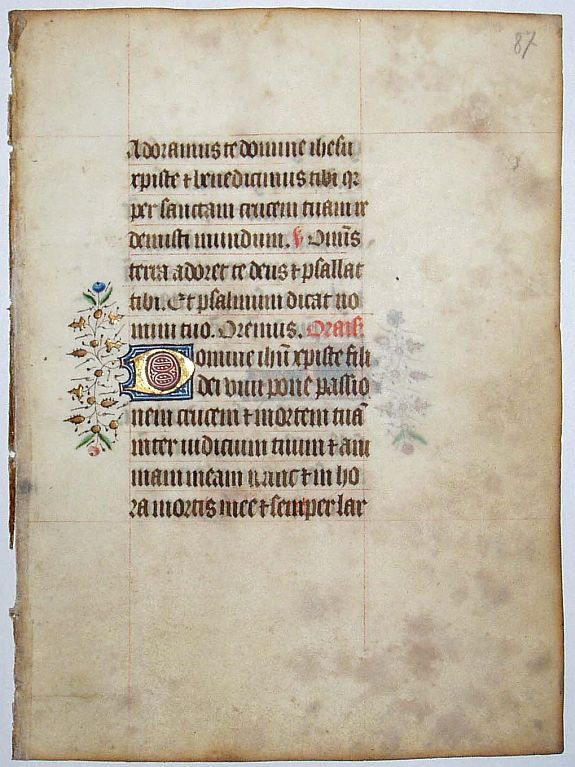 87
Adoramus te domine ihesu
xpiste ⁊ benedicimus tibi qr
per sanctam crucem tuam re
demisti mundum. v Omīs
terra adoret te deus ⁊ psallat
tibi. Et psalmum dicat no
mini tuo. Oremus. Orais̄
Domine ihū xpiste fili
dei viui pone passio
nem crucem ⁊ mortem tuā
inter iudicium tuum ⁊ ani
mam meam nunc ⁊ in ho
ra mortis mee ⁊ semper lar